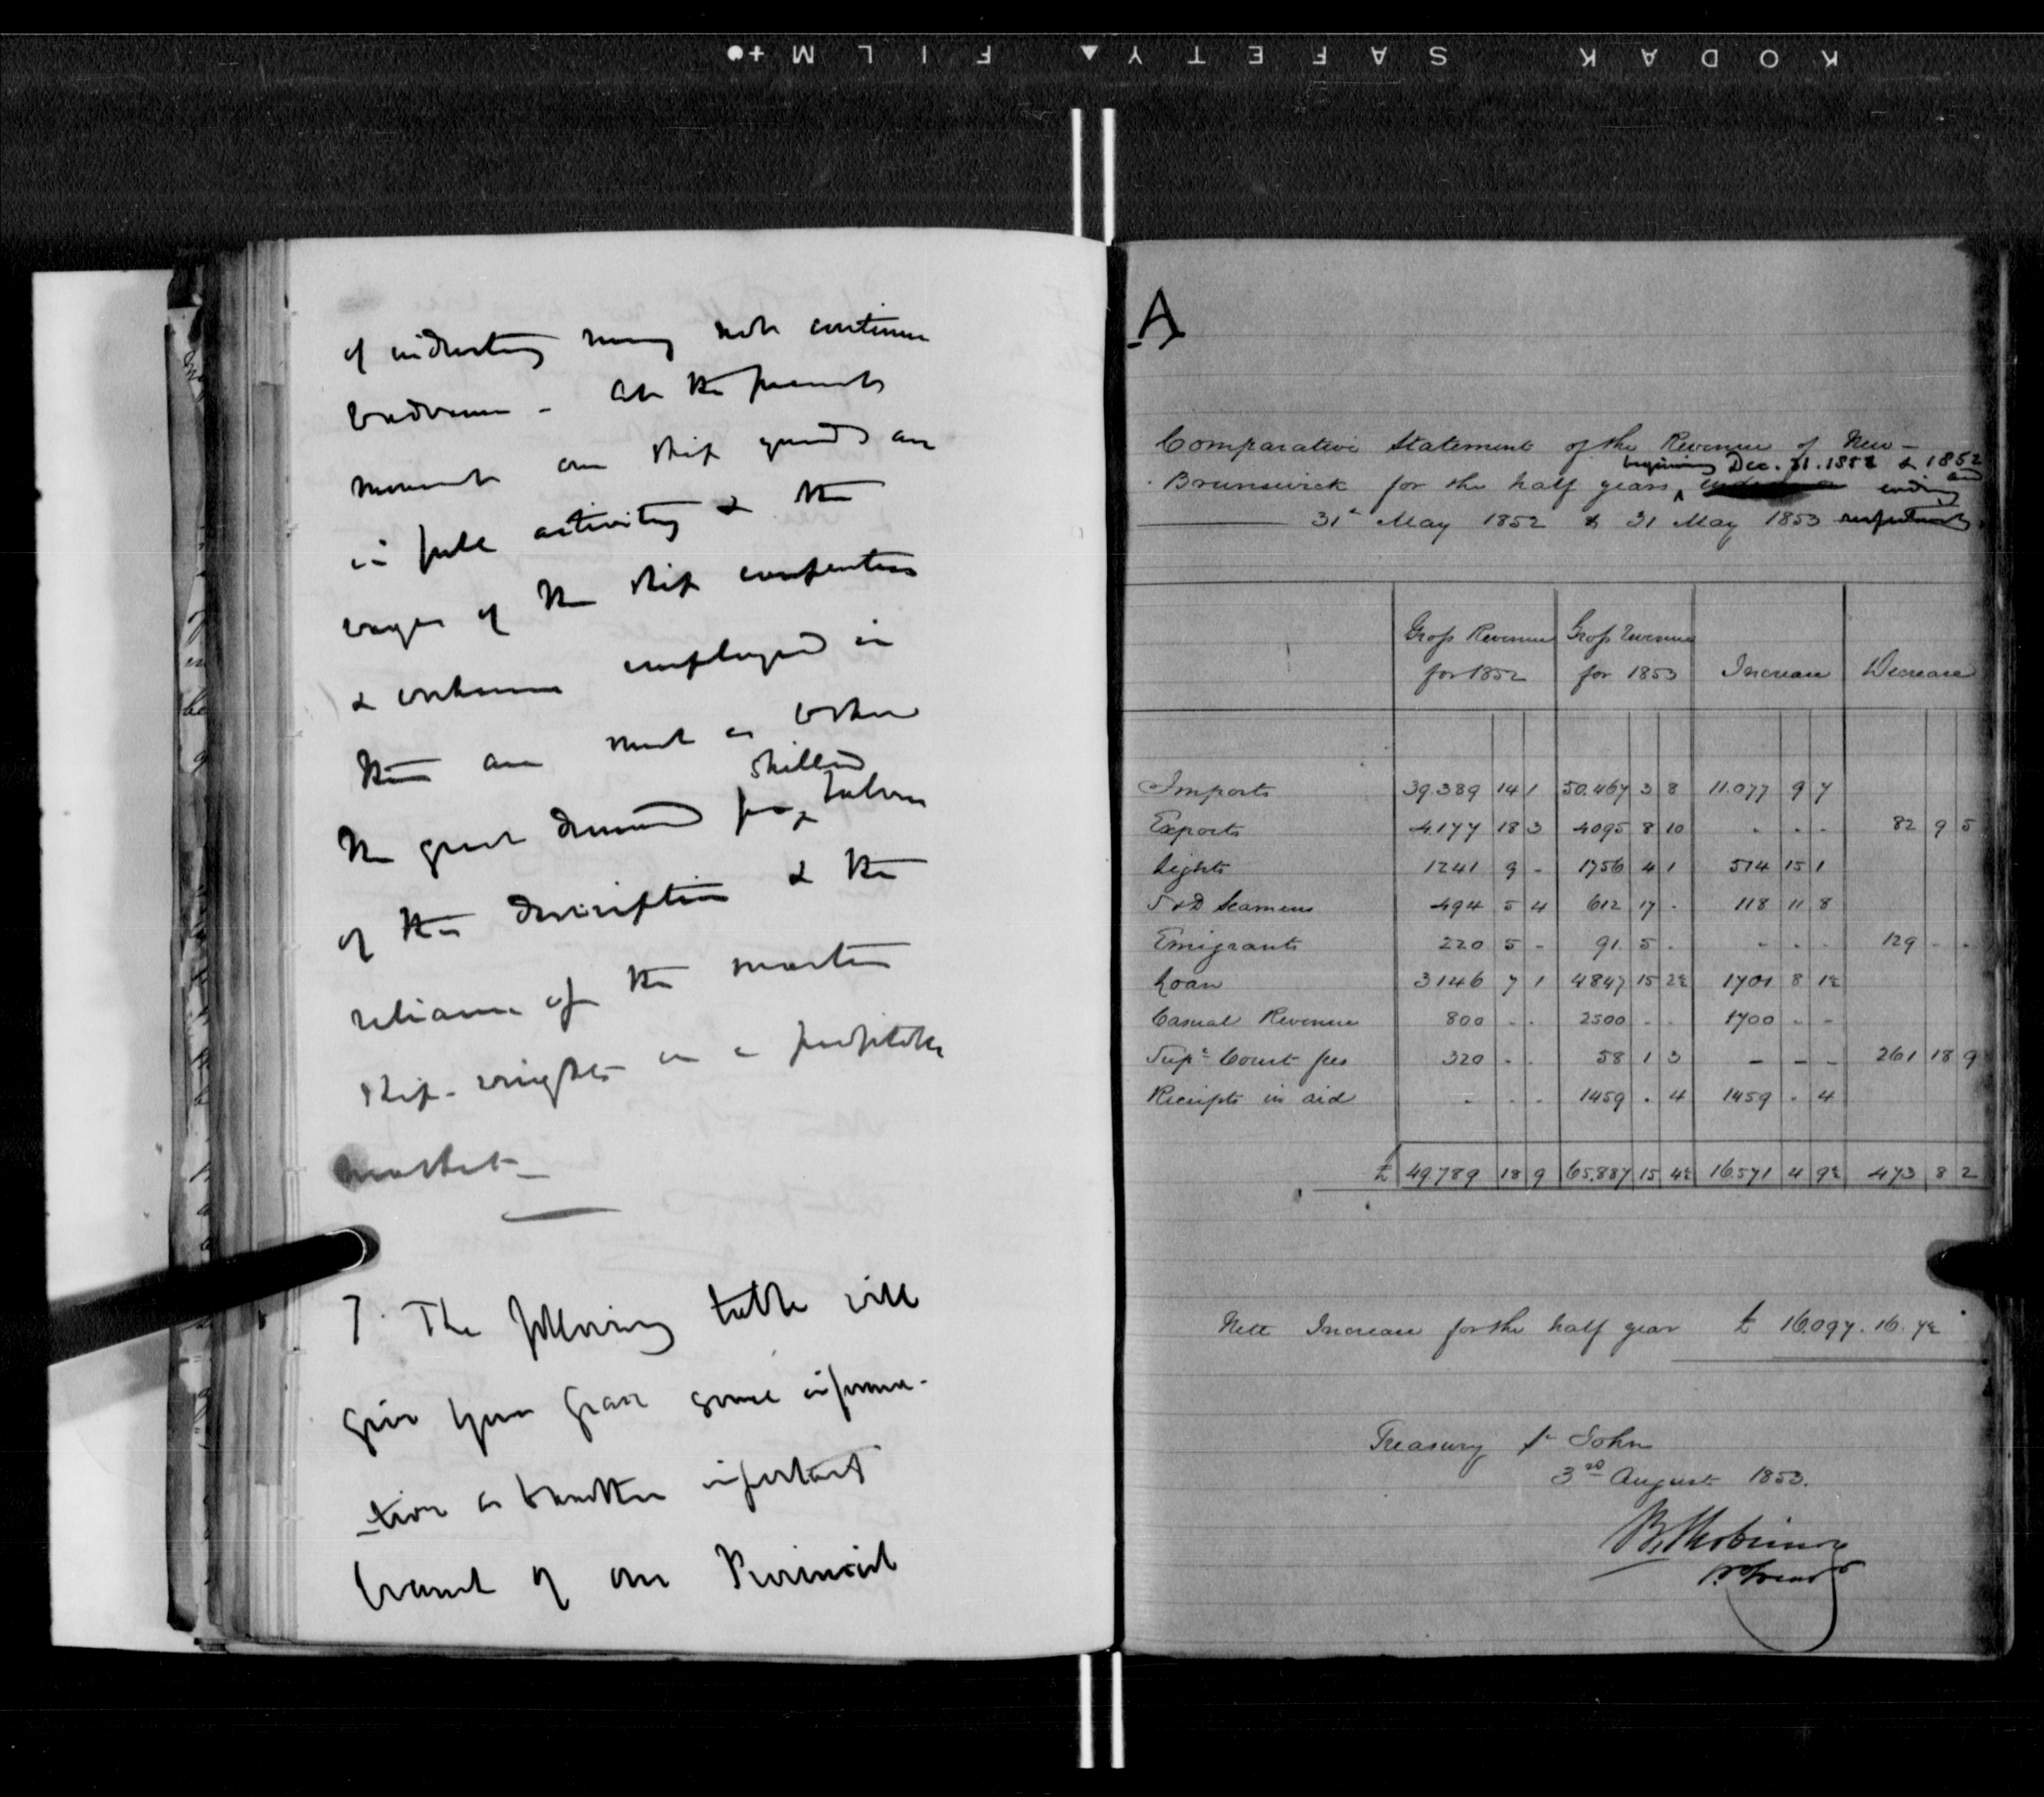 KODAK SAFETY FILM
of industry may not continue
At the present
moment our ship yards are
in full activity & the
wages of the ship carpenters
& employed in
them are such as
skilled
the great demand for labour
of this description & the
reliance of the
ship-wrights on a profitable
market
7. The following table will
give your Grace some informa-
-tion as to another important
branch of our Provincial
A
Comparative Statement of the Revenue of New-
beginning Dec. 31. 1851 & 1852
Brunswick for the half years ending and
31st May 1852 & 31 May 1853 respectively
Gross Revenue for 1852 Gross Revenue for 1853 Increase Decrease
Imports 39.389 14 1 50.467 3 8 11.077 9 7
Exports 4177 18 3 4095 8 10 . . . 82 9 5
Lights 1241 9 - 1756 4 1 514 15 1
S & D Seamens 494 5 4 612 17 . 118 11 8
Emigrants 220 5 - 91. 5 . - . . 129 - .
Loan 3146 7 1 4847 15 2½ 1701 8 1½
Casual Revenue 800 . . 2500 . . 1700 . -
Supe Court fees 320 . . 58 1 3 - - - 261 18 9
Receipts in aid . . . 1459 . 4 1459 . 4
£ 49789 18 9 65.887 15 4½ 16.571 4 9½ 473 8 2
Nett Increase for the half year £ 16.097. 16. 7½
Treasury St John
3rd August 1853.
B Robinson